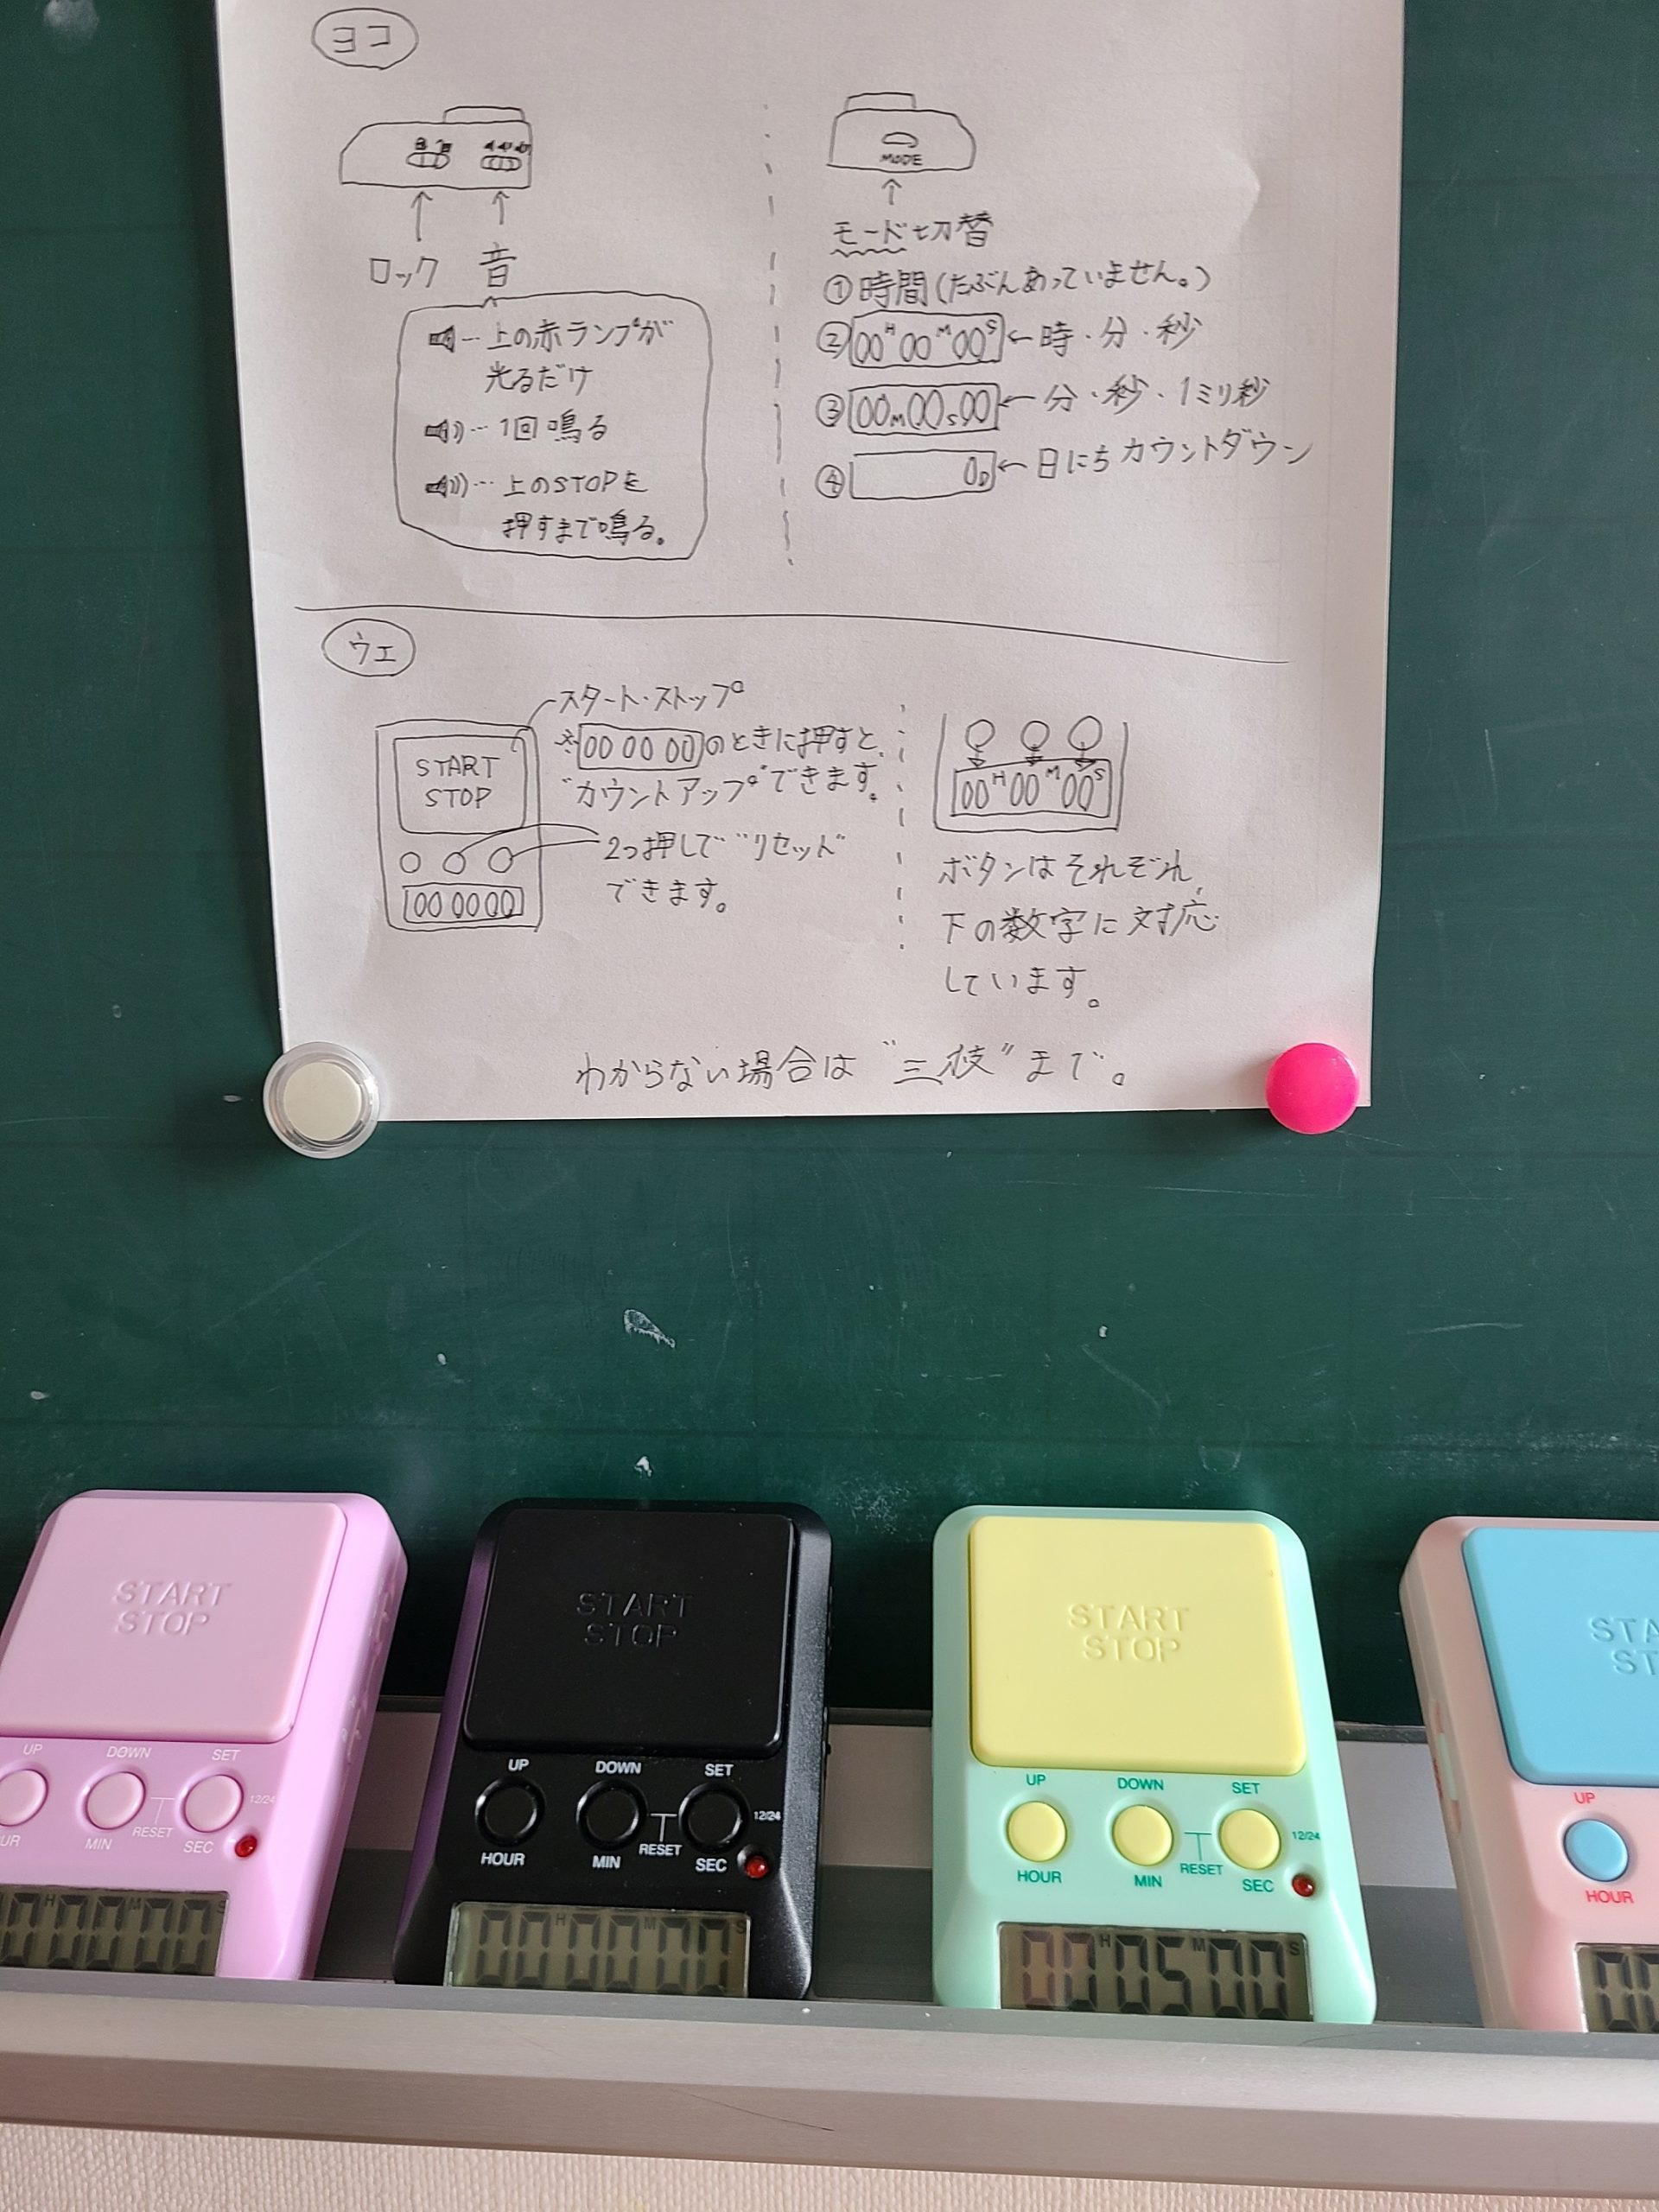 ヨコ
MODE
ロック 音
モード切替
…上の赤ランプが
光るだけ
…1回鳴る
…上のSTOPを
押すまで鳴る。
①時間(たぶんあっていません。)
②00H00M00S←時・分・秒
③00M00S00←分・秒・1ミリ秒
④0D←日にちカウントダウン
ウエ
START
STOP
00 00 00
スタート・ストップ
※00 00 00のときに押すと、
"カウントアップ"できます。
2つ押しで"リセット"
できます。
00H00M00S
ボタンはそれぞれ、
下の数字に対応
しています。
わからない場合は"三枝"まで。
START
STOP
UP DOWN SET
12/24
MIN RESET SEC
START
STOP
UP DOWN SET
12/24
HOUR MIN RESET SEC
00H00M00S
START
STOP
UP DOWN SET
12/24
HOUR MIN RESET SEC
00H05M00S
UP
HOUR